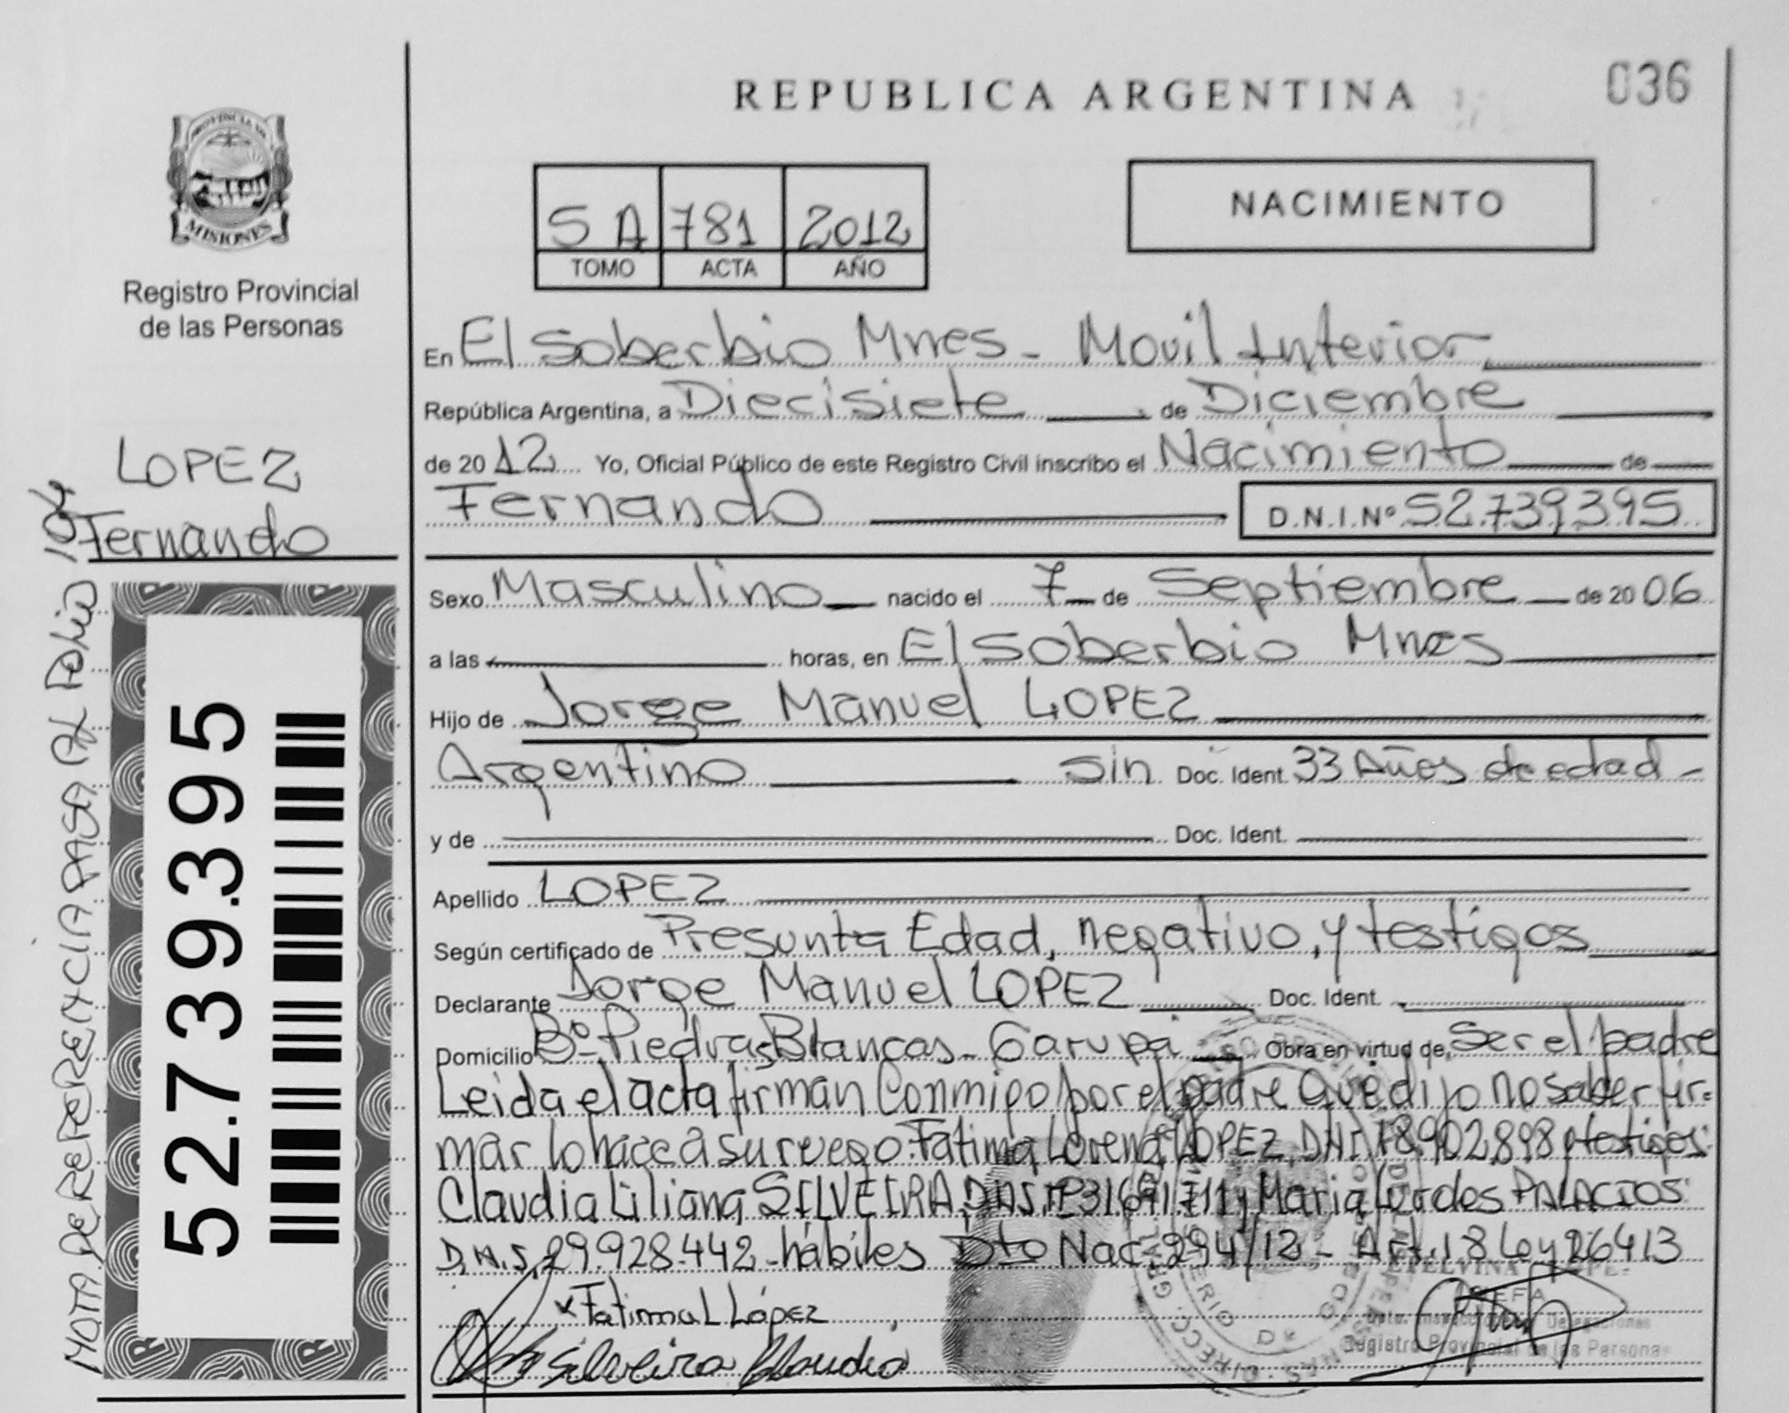 REPUBLICA ARGENTINA
036
PROVINCIA DE
MISIONES
Registro Provincial
de las Personas
5 A 781 2012
TOMO ACTA AÑO
NACIMIENTO
En El Soberbio Mnes - Movil Interior
República Argentina, a Diecisiete de Diciembre
de 2012 Yo, Oficial Público de este Registro Civil inscribo el Nacimiento de
Fernando D.N.I.Nº 52.739.395
LOPEZ
Fernando
Sexo Masculino nacido el 7 de Septiembre de 2006
a las horas, en El Soberbio Mnes
Hijo de Jorge Manuel LOPEZ
Argentino sin Doc. Ident. 33 Años de edad -
y de Doc. Ident.
Apellido LOPEZ
Según certificado de Presunta Edad, negativo, y testigos
Declarante Jorge Manuel LOPEZ Doc. Ident.
Domicilio Bº Piedras Blancas - Garupa Obra en virtud de Ser el padre
Leida el acta firman Conmigo por el padre Que dijo no saber fir=
mar lo hace a su ruego: Fatima Lorena LOPEZ, DNI 18.902.898 y testigos:
Claudia Liliana SILVEIRA, DNI Nº 31.691.711 y Maria Lurdes PALACIOS
D.N.I. 29.928.442 - hábiles Dto Nac. 294/12 - Art. 18 Ley 26413
x Fatima L López
Silveira Claudia
JEFA
Registro Provincial de las Personas
52.739.395
NOTA DE REFERENCIA PASA AL FOLIO 104